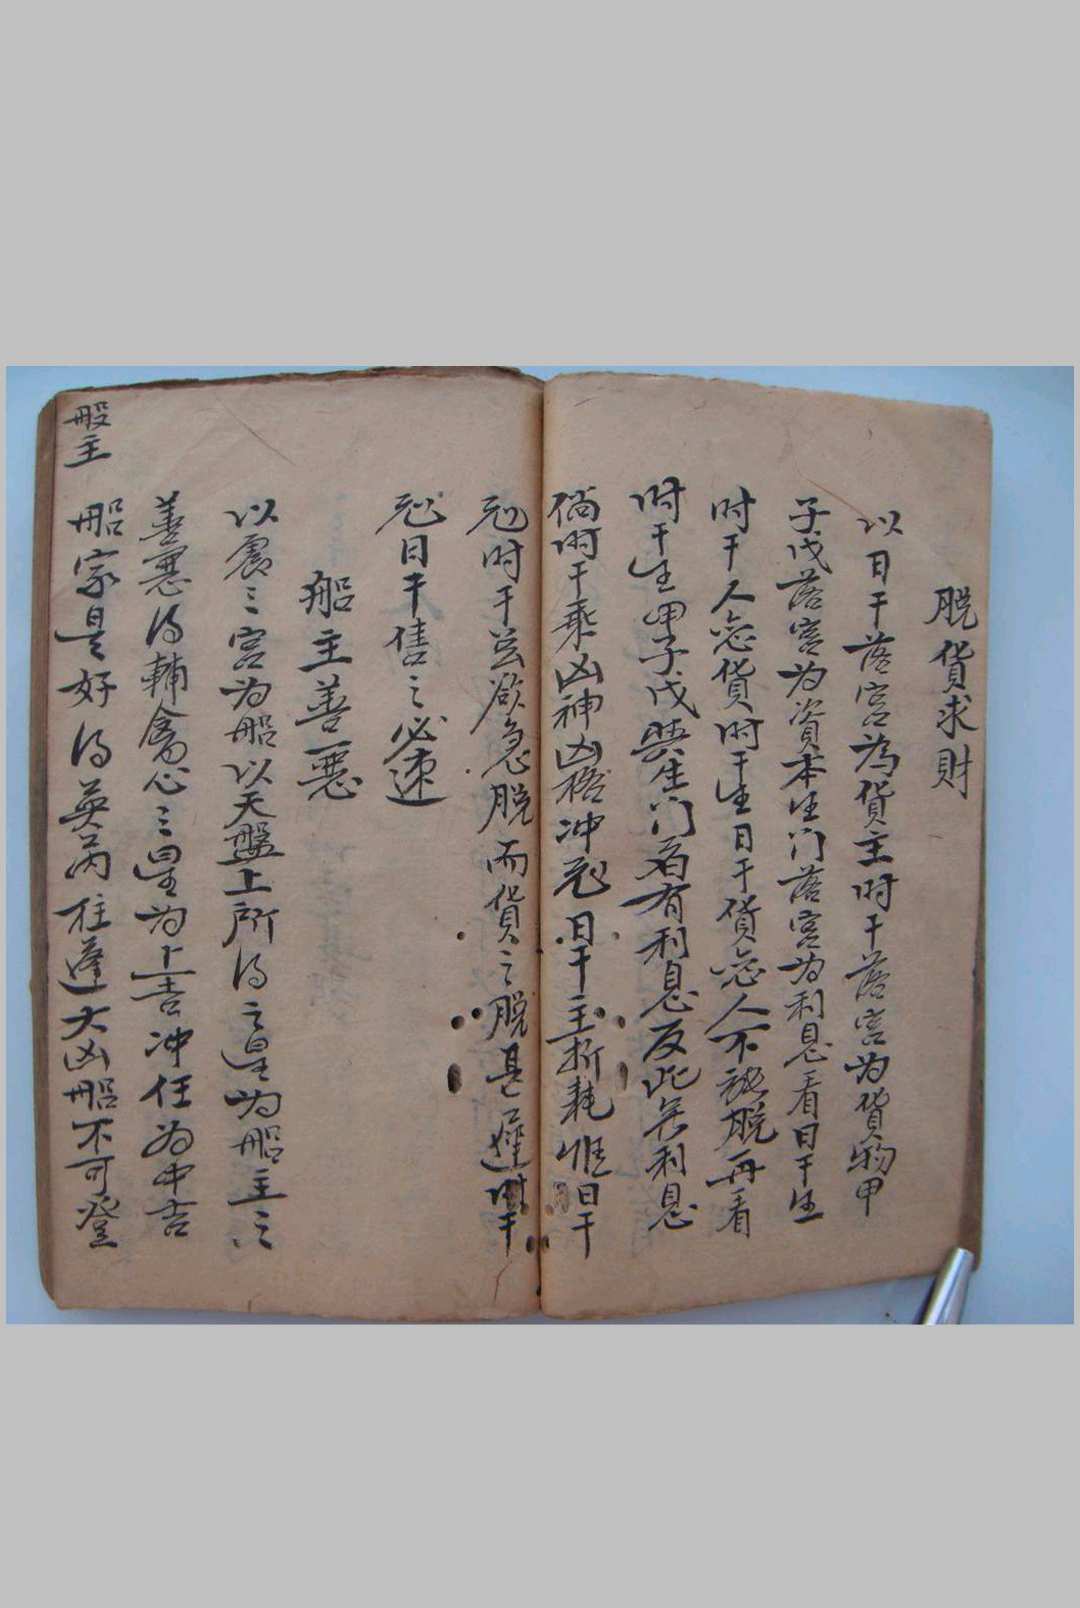 脱貨求財
以日干落宮為貨主时干落宮为貨物甲
子戊落宮为資本生门落宮为利息看日干生
时干人恋貨时干生日干貨恋人不能脱再看
时干生甲子戊與生门者有利息反此無利息
倘时干乘凶神凶格冲尅日干主折耗惟日干
尅时干兹欲急脱而貨之脱甚遲时干
尅日干售之必速
船主善惡
以震三宮为船以天盤上所得之星为船主之
善惡得輔禽心三星为上吉冲任为中吉
船家是好得英芮柱蓬大凶船不可登
船主